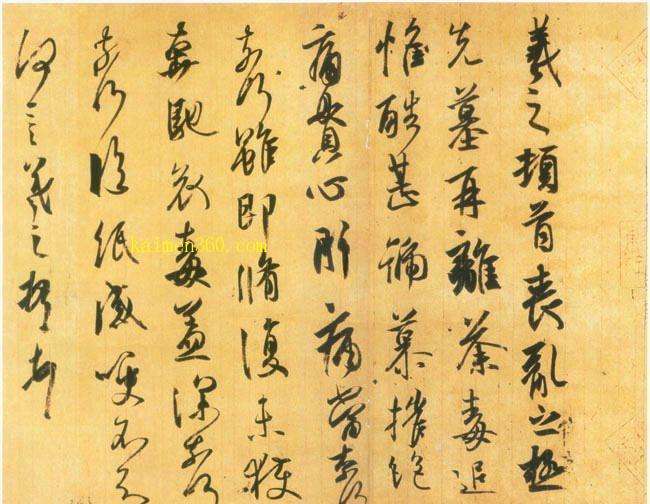 羲之頓首喪亂之極
先墓再離荼毒追
惟酷甚號慕摧絶
痛貫心肝痛當奈何
奈何雖即脩復未獲
奔馳哀毒益深奈何
奈何臨紙感哽不知
何言羲之頓首
kaimen360.com